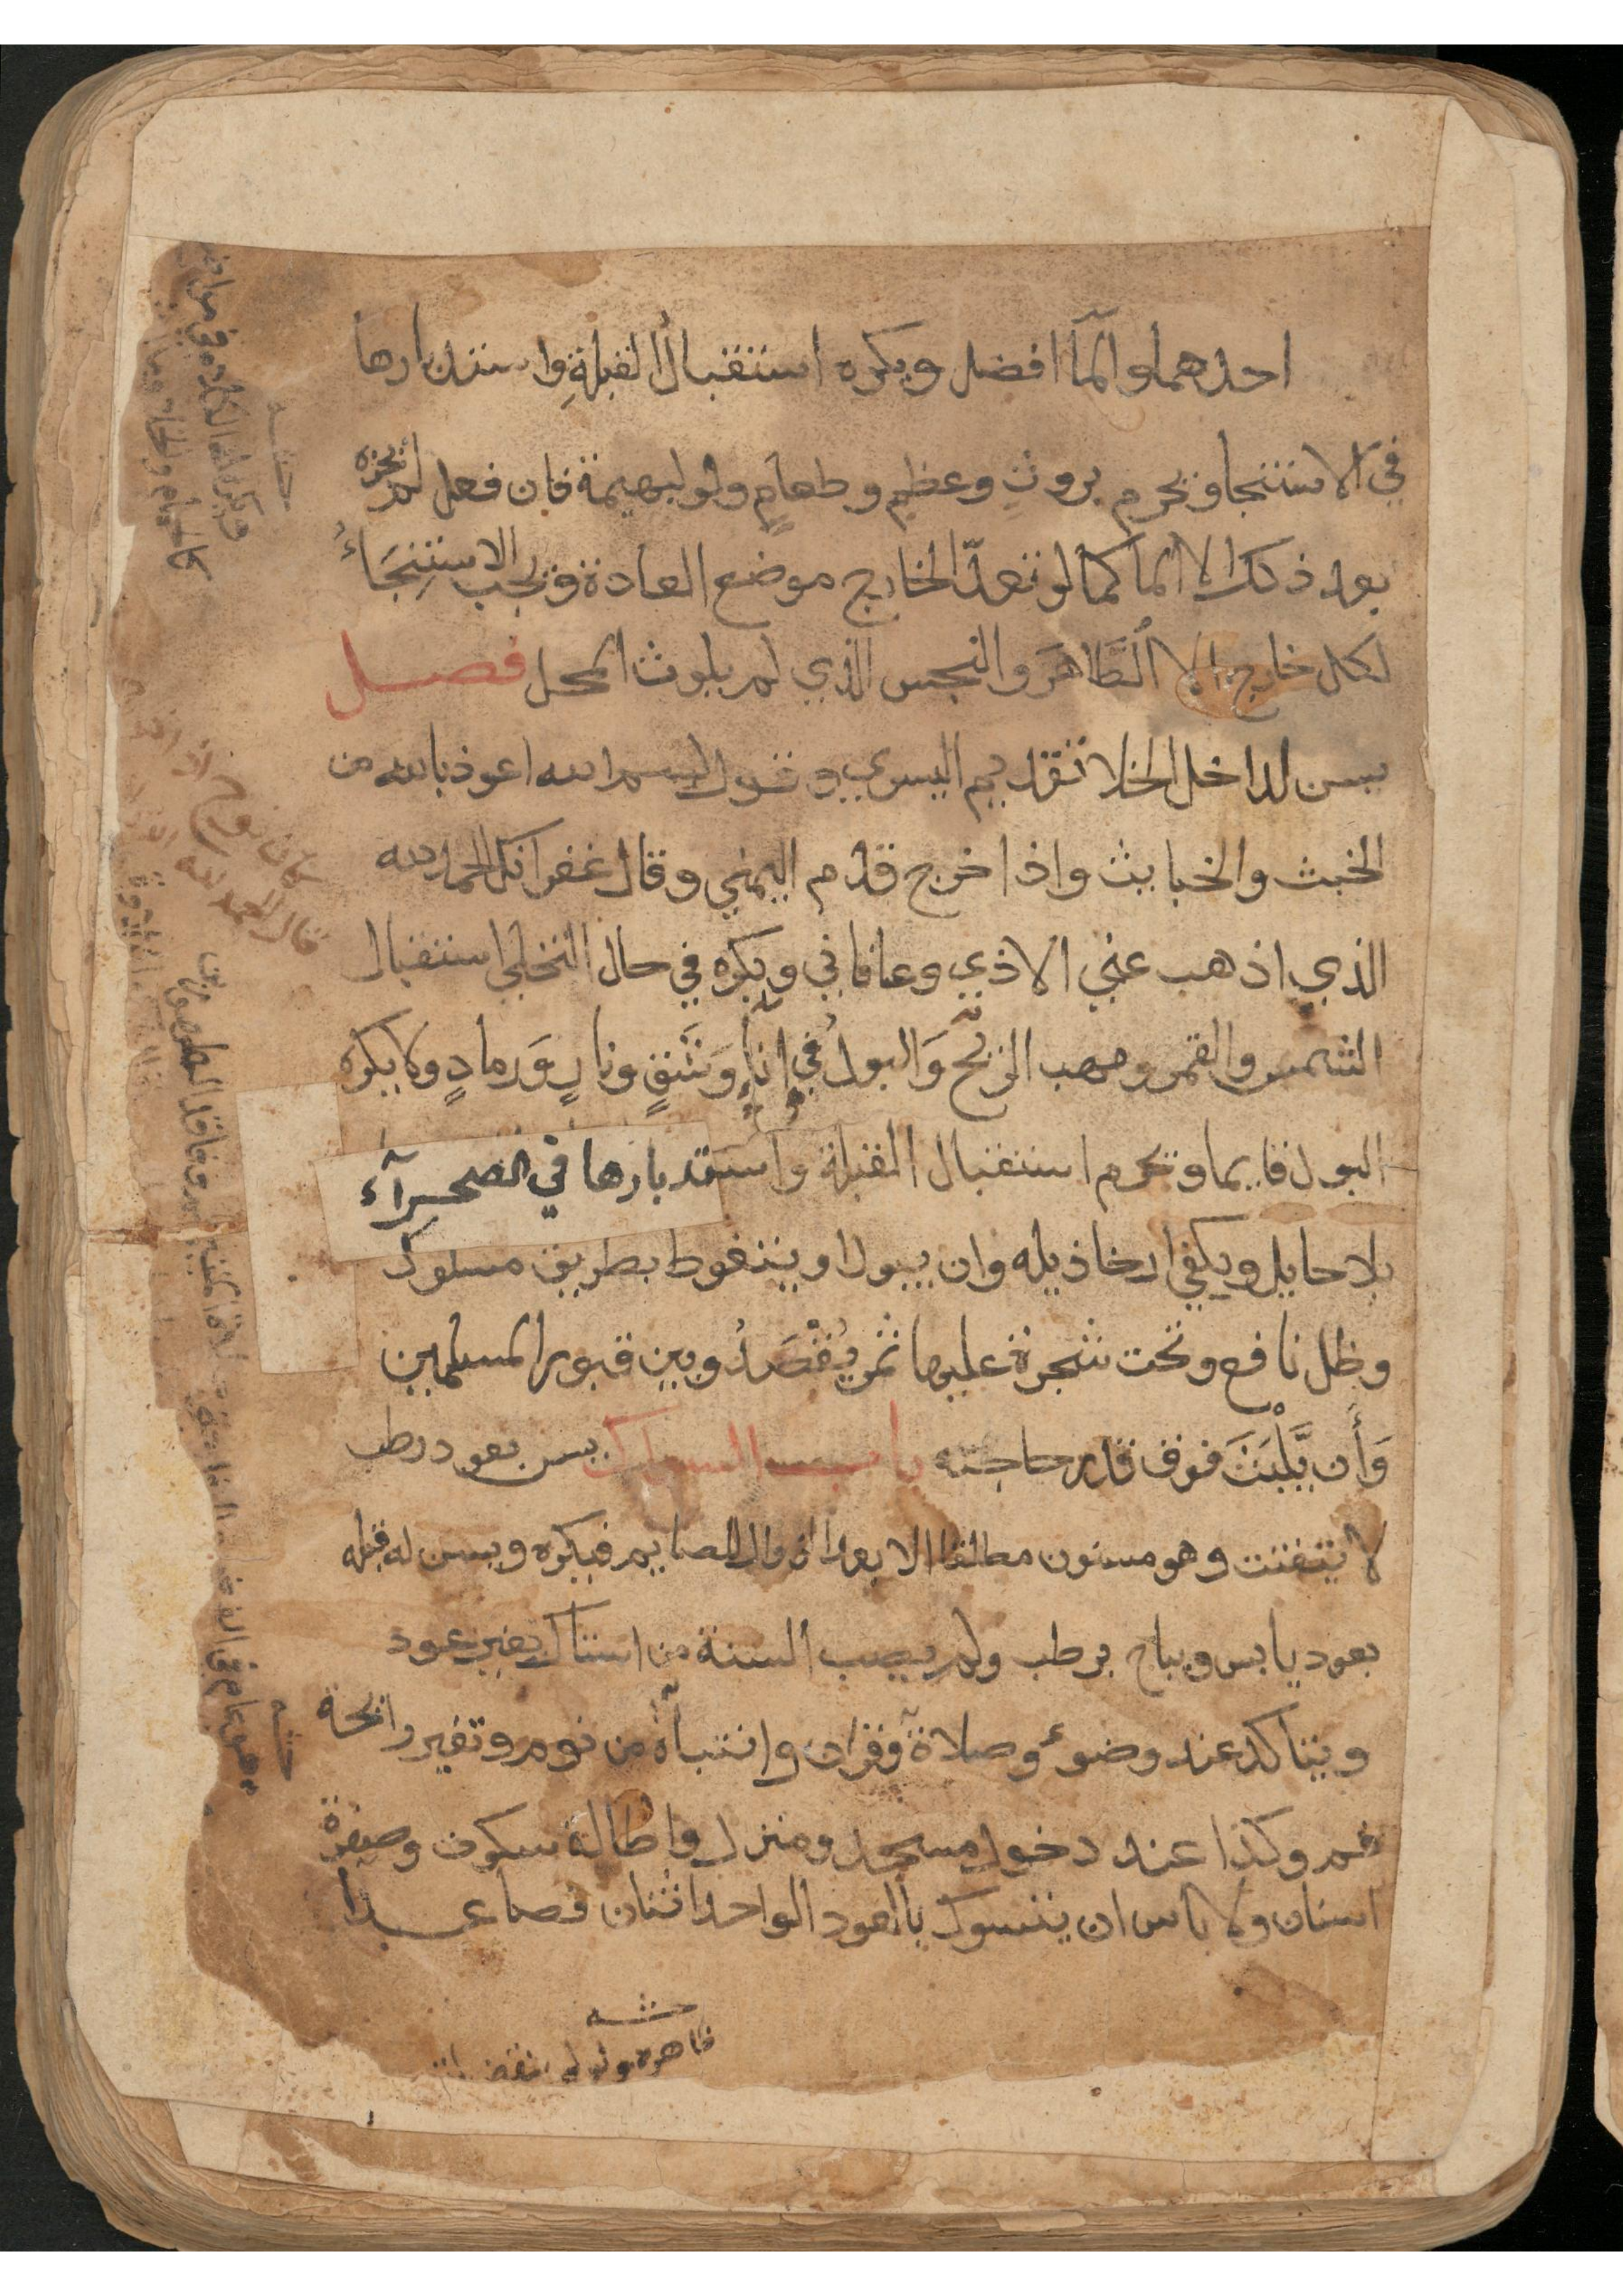 احدهما والمآ افضل ويكره استقبال القبلةِ واستدبارها
في الاستنجا ويحرم بروثٍ وعظمٍ وطعامٍ ولو لبهيمة فان فعل لم يجزه
بعد ذلك الا الما كما لو تعدّا الخارج موضع العادة ويجب الاستنِجَاءُ
لكل خارج الا الطَّاهرَ والنجس الذي لم يلوث المحل فصل
يسن لداخل الخلا تقديم اليسري وقول بسم الله اعوذ بالله من
الخبث والخبايث واذا خرج قدم اليمني وقال غفرانك الحمد لله
الذي اذهب عني الاذي وعافاني ويكره في حال التخلي استقبال
الشمس والقمر ومهب الريّح وَالبولُ في إناءٍ وَشَقٍ ونارٍ وَرمادٍ ولا يكره
البول قايما ويحرم استقبال القبلة واستدبارها في الصحرآء
بلا حايل ويكفي ارخا ذيله وان يبول او يتغوط بطريق مسلوك
وظل نافع وتحت شجرة عليها ثمر يُقْصَدُ وبين قبور المسلمين
وَأَن يَّلْبَثَ فوق قدر حاجته باب السواك يسن بعود رطب
لا يتفتت وهو مسنون مطلقا الا بعد الزوال للصايم فيكره ويسن له قبله
بعود يابس ويباح برطب ولم يصب السنة من استاك بغير عود
ويتاكد عند وضوء وصلاة وقرآت وانتباه من نوم وتغير رائحة
فم وكذا عند دخول مسجد ومنزل واطالة سكوت وصفرة
اسنان ولا باس ان يتسوك بالعود الواحد اثنان فصاعدا